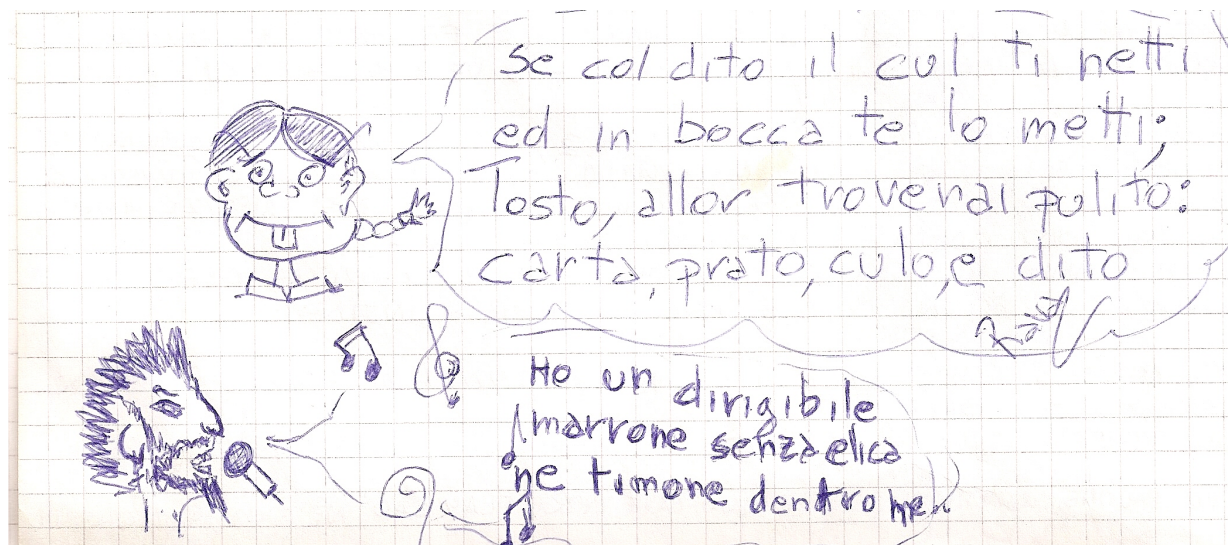 Se col dito il cul ti netti
ed in bocca te lo metti;
Tosto, allor troverai pulito:
carta, prato, culo, e dito
Ho un dirigibile
marrone senza elica
ne timone dentro me..